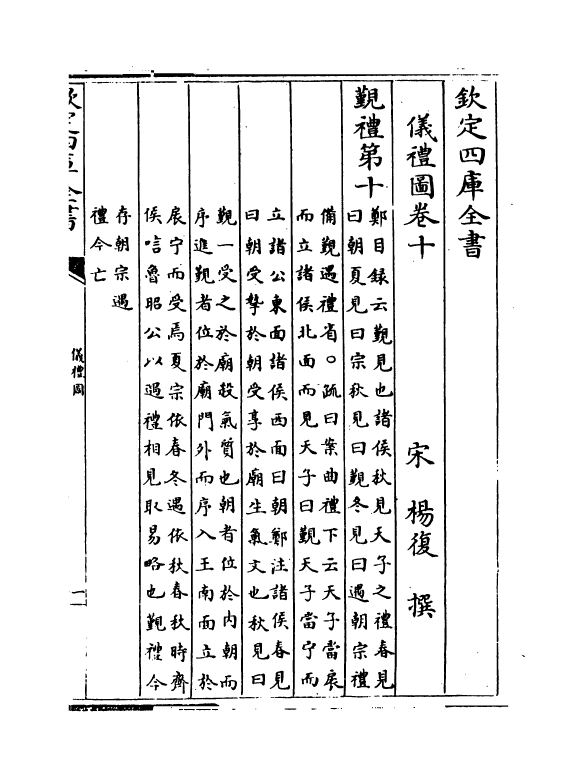 欽定四庫全書
儀禮圖卷十
宋 楊復 撰
覲禮第十
鄭目録云覲見也諸侯秋見天子之禮春見
曰朝夏見曰宗秋見曰覲冬見曰遇朝宗禮
備覲遇禮省○疏曰案曲禮下云天子當扆
而立諸侯北面而見天子曰覲天子當宁而
立諸公東面諸侯西面曰朝鄭注諸侯春見
曰朝受摯於朝受享於廟生氣文也秋見曰
覲一受之於廟殺氣質也朝者位於内朝而
序進覲者位於廟門外而序入王南面立於
扆宁而受焉夏宗依春冬遇依秋春秋時齊
侯唁魯昭公以遇禮相見取易略也覲禮今
存朝宗遇
禮今亡
欽定四庫全書
儀禮圖
一